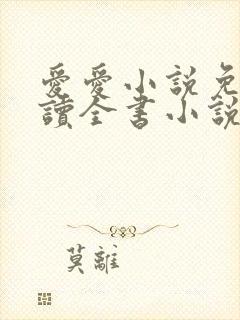 愛愛小說免
讀全書小說
莫離